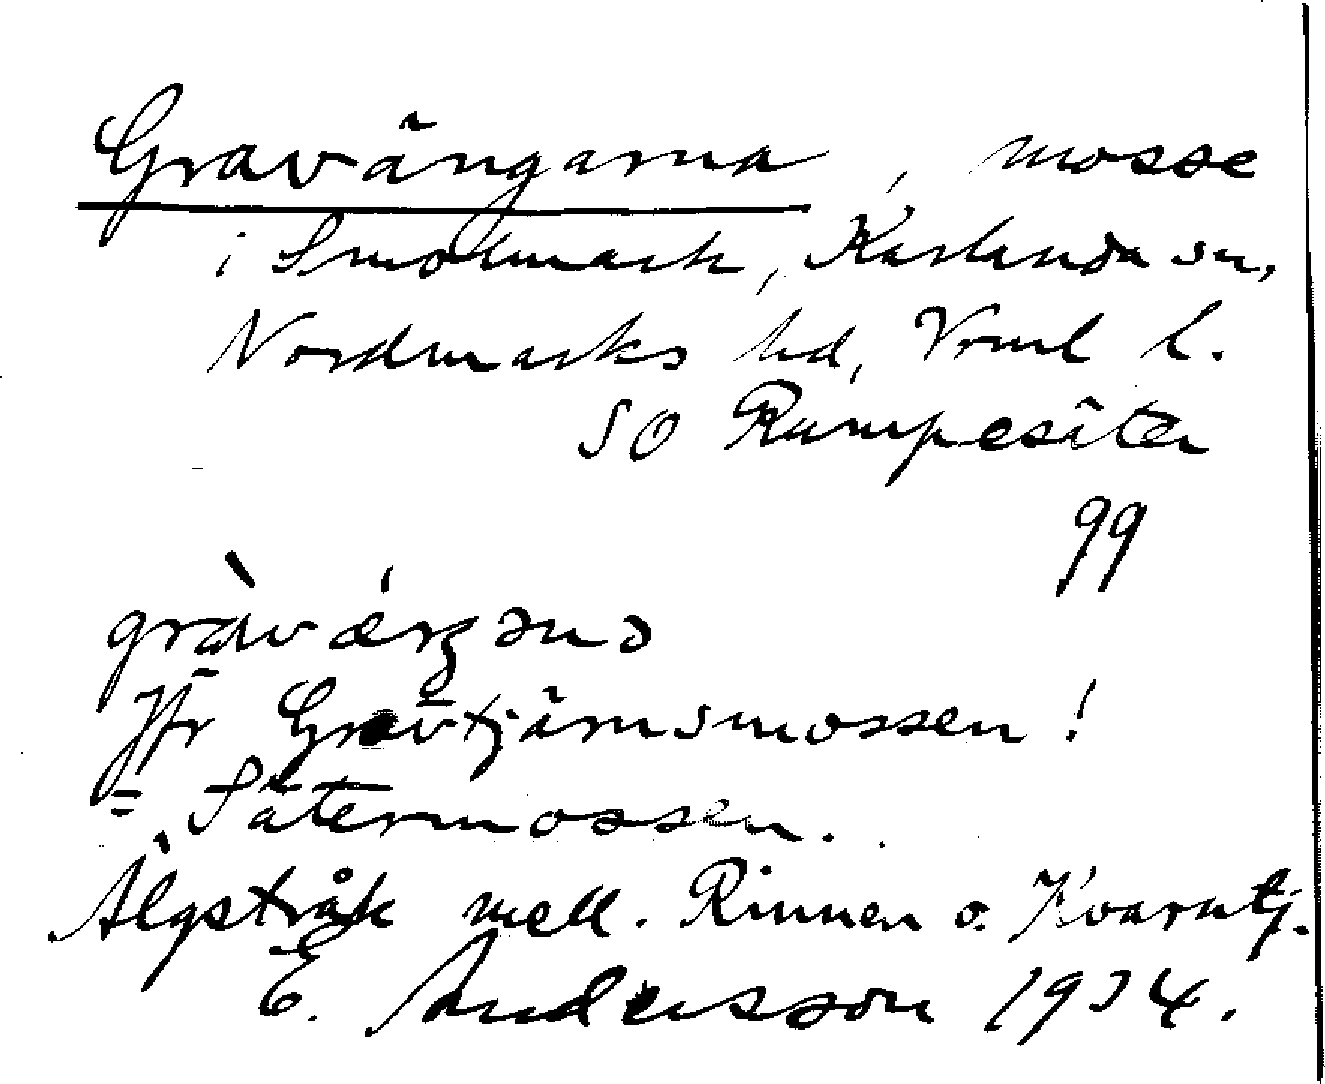 Gravängarna, mosse
i Smolmark, Karlanda sn,
Nordmarks hd, Vrml l.
SO Rampesäter
99
gràvǽŋgəɳə
Jfr Gravtjärnsmossen!
= Sätermossen.
Älgstråk mell. Rinnen o. Kvarntj.
E. Andersson 1934.